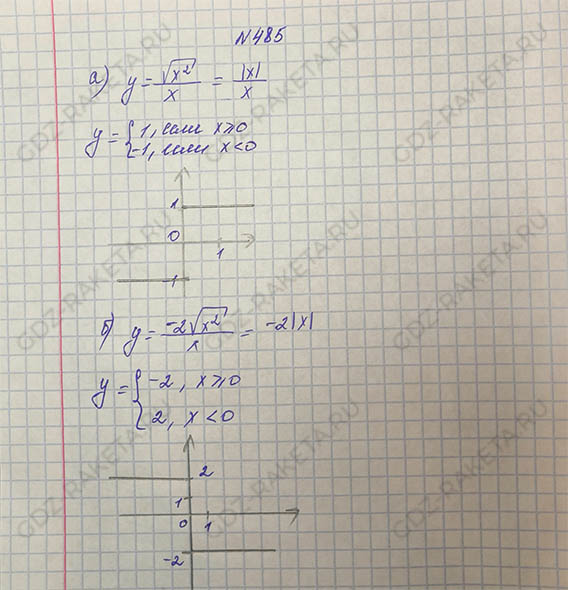 N485
а) y = √x² / x = |x| / x
y = { 1, если x ≥ 0
-1, если x < 0
1
0
1
-1
б) y = -2√x² / x = -2|x|
y = { -2, x ≥ 0
2, x < 0
2
1
0 1
-2
GDZ-RAKETA.RU
GDZ-RAKETA.RU
GDZ-RAKETA.RU
GDZ-RAKETA.RU
GDZ-RAKETA.RU
GDZ-RAKETA.RU
GDZ-RAKETA.RU
GDZ-RAKETA.RU
GDZ-RAKETA.RU